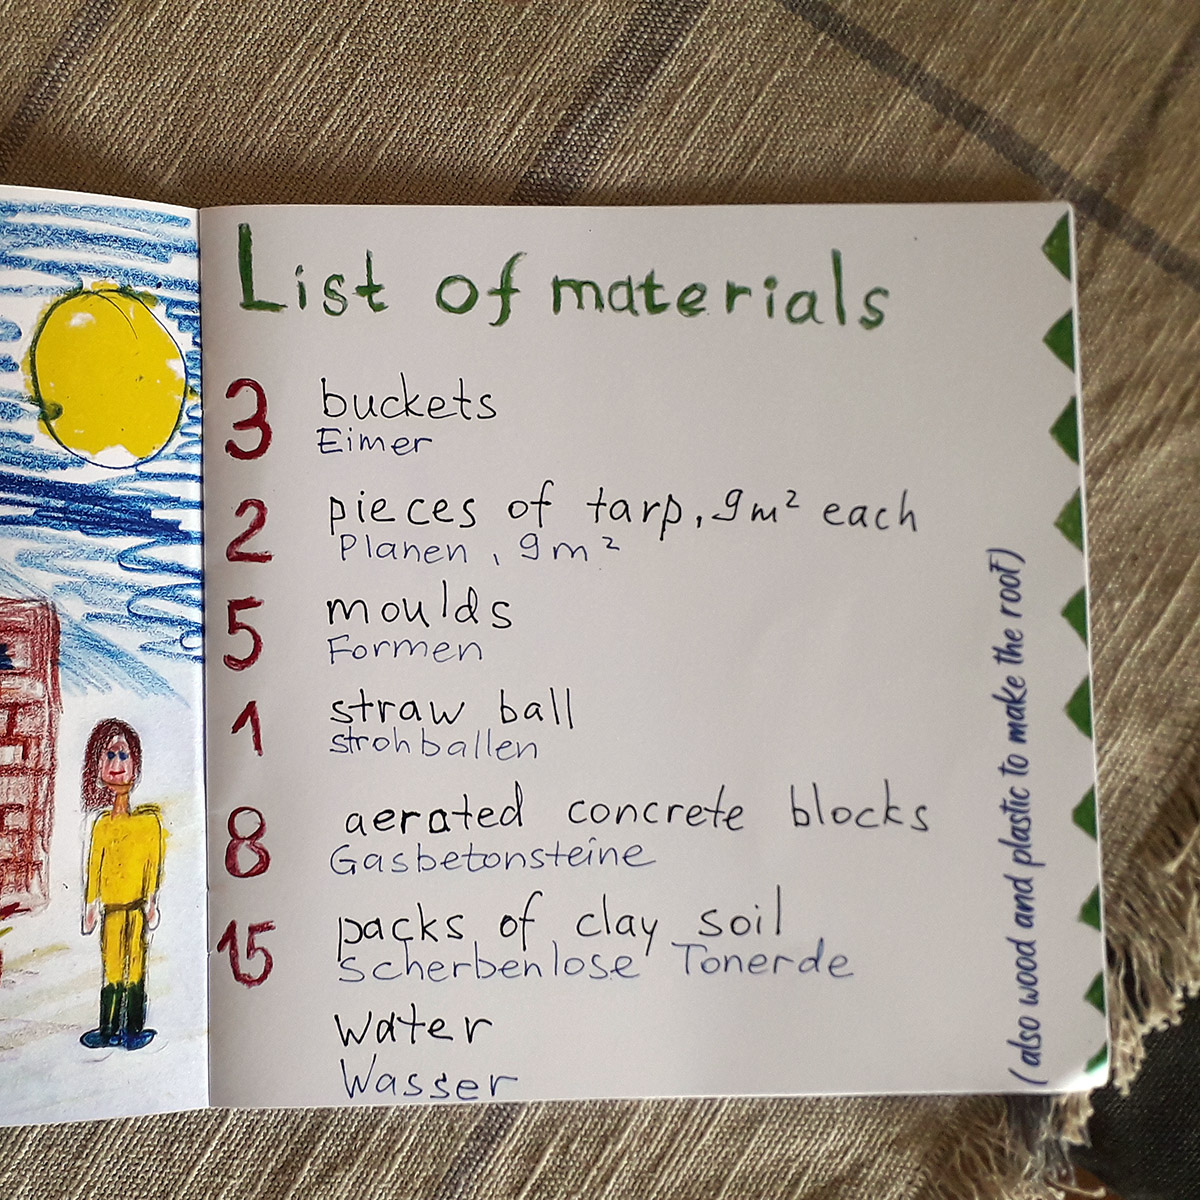 List of materials
3 buckets
Eimer
2 pieces of tarp, 9m² each
Planen, 9m²
5 moulds
Formen
1 straw ball
strohballen
8 aerated concrete blocks
Gasbetonsteine
15 packs of clay soil
Scherbenlose Tonerde
Water
Wasser
(also wood and plastic to make the roof)